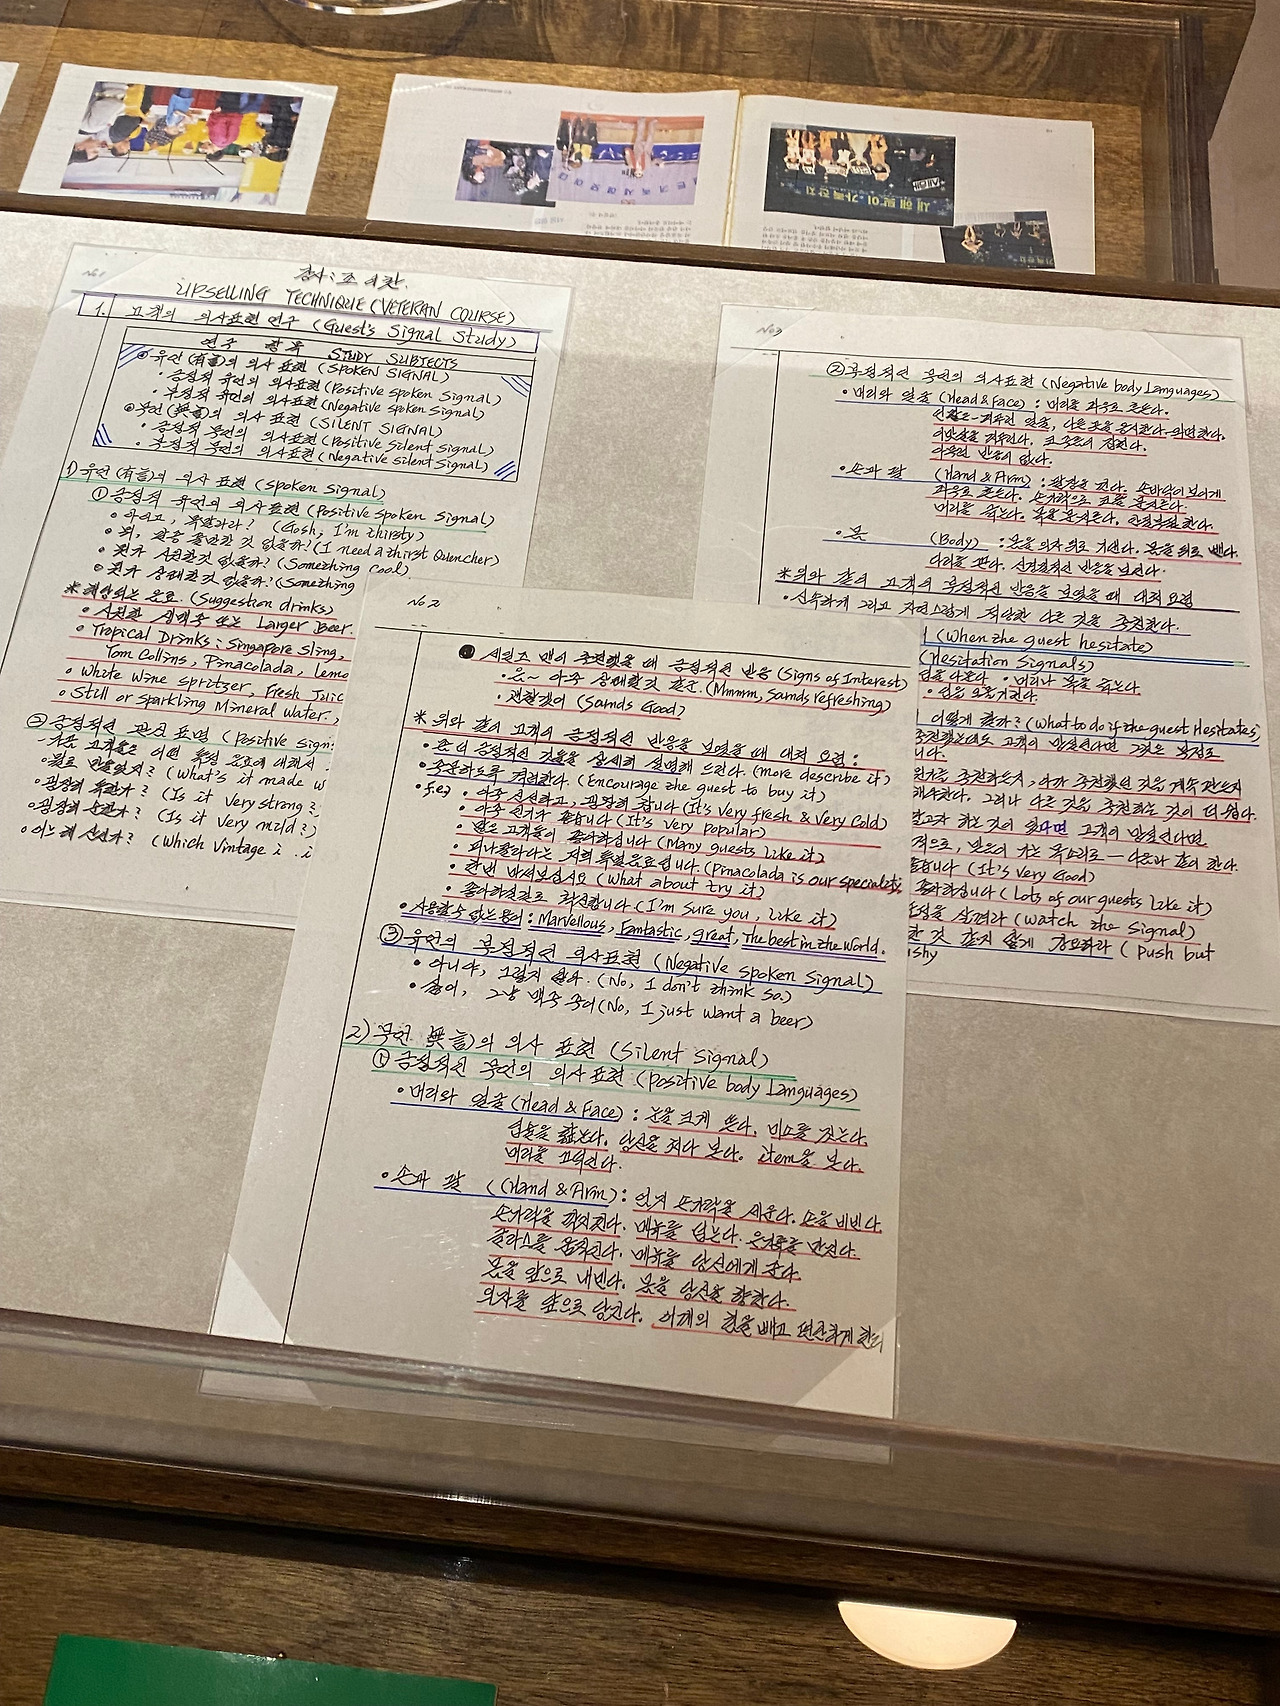 No.1
강사: 조
UPSELLING TECHNIQUE (VETERAN COURSE)
1. 고객의 의사표현 연구 (Guest's Signal Study)
연구 항목 STUDY SUBJECTS
유언(有言)의 의사표현 (SPOKEN SIGNAL)
• 긍정적 유언의 의사표현 (Positive spoken Signal)
• 부정적 유언의 의사표현 (Negative spoken Signal)
묵언(無言)의 의사표현 (SILENT SIGNAL)
• 긍정적 묵언의 의사표현 (Positive silent Signal)
• 부정적 묵언의 의사표현 (Negative silent Signal)
1) 유언(有言)의 의사표현 (Spoken Signal)
① 긍정적 유언의 의사표현 (Positive spoken Signal)
• 아이고, 목말라라! (Gosh, I'm thirsty)
• 뭐, 갈증 풀만한 것 없을까? (I need a thirst Quencher)
• 뭔가 시원한것 없을까? (Something cool)
• 뭔가 상쾌한것 없을까? (Something
* 예상되는 음료. (Suggestion drinks)
• 시원한 생맥주 또는 Larger Beer.
• Tropical Drinks: Singapore Sling,
Tom Collins, Pinacolada, Lemo
• White wine Spritzer, Fresh Juic
• Still or sparkling Mineral water.
② 긍정적인 관심 표명 (Positive Sign
- 가끔 고객들은 어떤 특정 음료에 대해서
• 뭘로 만들었지? (What's it made w
• 굉장히 독한가? (Is it very strong?
• 굉장히 순한가? (Is it very mild?)
• 어느해 산인가? (Which Vintage i
No 2
세일즈 맨이 추천했을 때 긍정적인 반응 (Signs of Interest)
• 음~ 아주 상쾌할것 같군. (Mmmm, Sounds refreshing)
• 괜찮겠어 (Sounds Good)
* 위와 같이 고객의 긍정적인 반응을 보였을 때 대처 요령:
• 좀 더 긍정적인 것들을 상세히 설명해 드린다. (more describe it)
• 주문하도록 격려한다. (Encourage the guest to buy it)
• (ex) • 아주 신선하고, 굉장히 찹니다 (It's very fresh & very cold)
• 아주 인기가 좋습니다 (It's very popular)
• 많은 고객들이 좋아하십니다 (Many guests like it)
• 피나콜라다는 저희 특별음료입니다. (Pinacolada is our speciality
• 한번 마셔보십시요 (What about try it)
• 좋아하실걸로 확신합니다 (I'm sure you, like it)
• 사용할수 있는 용어: Marvellous, Fantastic, great, The best in the world.
③ 유언의 부정적인 의사표현 (Negative spoken Signal)
• 아니야, 그렇지 않다. (No, I don't think so.)
• 싫어, 그냥 맥주 줘 (No, I just want a beer)
2) 묵언(無言)의 의사 표현 (Silent Signal)
① 긍정적인 묵언의 의사표현 (Positive body Languages)
• 머리와 얼굴 (Head & Face): 눈을 크게 뜬다. 미소를 짓는다.
입술을 핥는다. 당신을 쳐다 본다. item을 본다.
머리를 끄덕인다.
• 손과 팔 (Hand & Arm): 엄지 손가락을 세운다. 손을 비빈다.
손가락을 깍지낀다. 메뉴를 넘긴다. 은기류를 만진다.
글라스를 움직인다. 메뉴를 당신에게 준다.
몸을 앞으로 내민다. 몸을 당신을 향한다.
의자를 앞으로 당긴다. 어깨의 힘을 빼고 편안하게
No 3
② 부정적인 묵언의 의사표현 (Negative body Languages)
• 머리와 얼굴 (Head & Face): 머리를 좌우로 흔든다.
다른 곳을 응시한다-외면한다.
이맛살을 찌푸린다.
아무런 반응이 없다.
• 손과 팔 (Hand & Arm): 팔짱을 낀다. 손바닥이 보이게
좌우로 흔든다. 손가락으로 코를 문지른다.
머리를 긁는다. 목을 문지른다.
• 몸 (Body): 몸을 의자 뒤로 기댄다. 몸을 뒤로 뺀다.
다리를 꼰다. 신경질적인 반응을 보인다.
* 위와 같이 고객의 부정적인 반응을 보였을 때 대처 요령
• 신속하게 그리고 자연스럽게 적당한 다른 것을 추천한다.
(When the guest hesitate)
(Hesitation Signals)
입을 다문다. • 머리나 목을 긁는다.
• 입을 오물거린다.
어떻게 할까? (What to do if the guest Hesitates)
추천했는데도 고객이 망설인다면 그것은 부정도
니다.
해야한다. 그러나 다른 것을 추천하는 것이 더 쉽다.
팔고자 하는 것이 있다면 고객이 망설인다면
적으로, 믿음이 가는 목소리로 - 다음과 같이 한다.
좋습니다 (It's very Good)
좋아하십니다 (Lots of our guests like it)
표정을 살펴라 (Watch the Signal)
한 것 같지 않게 강요하라 (Push but
ishy
새해맞이 가족잔치